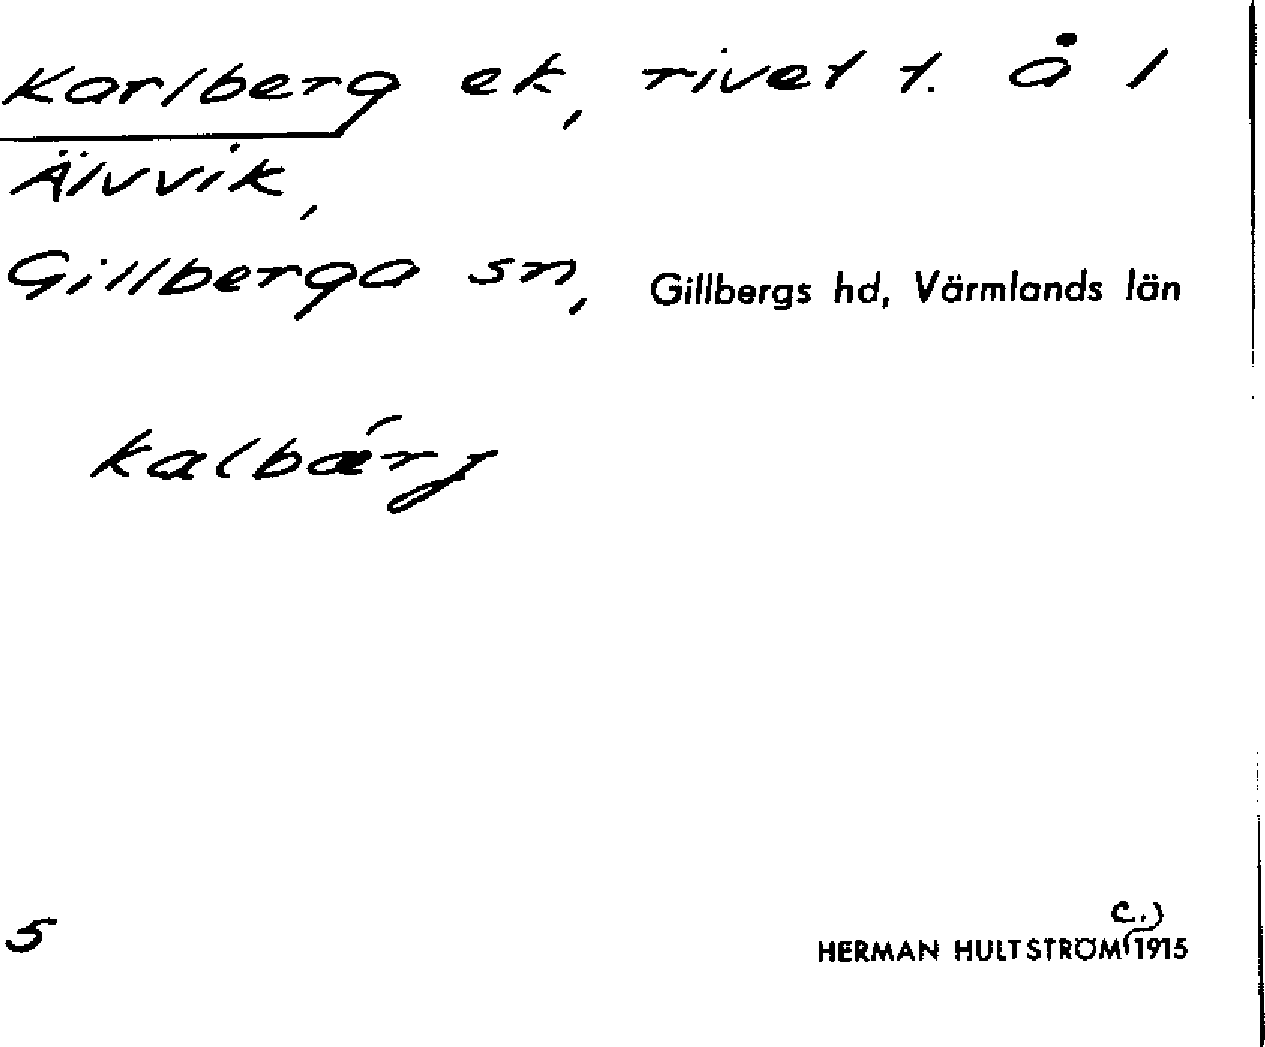 Karlberg ek, rivet t. å l
Älvvik,
Gillberga sn, Gillbergs hd, Värmlands län
kalbǽrj
5
HERMAN HULTSTRÖM (c.) 1915